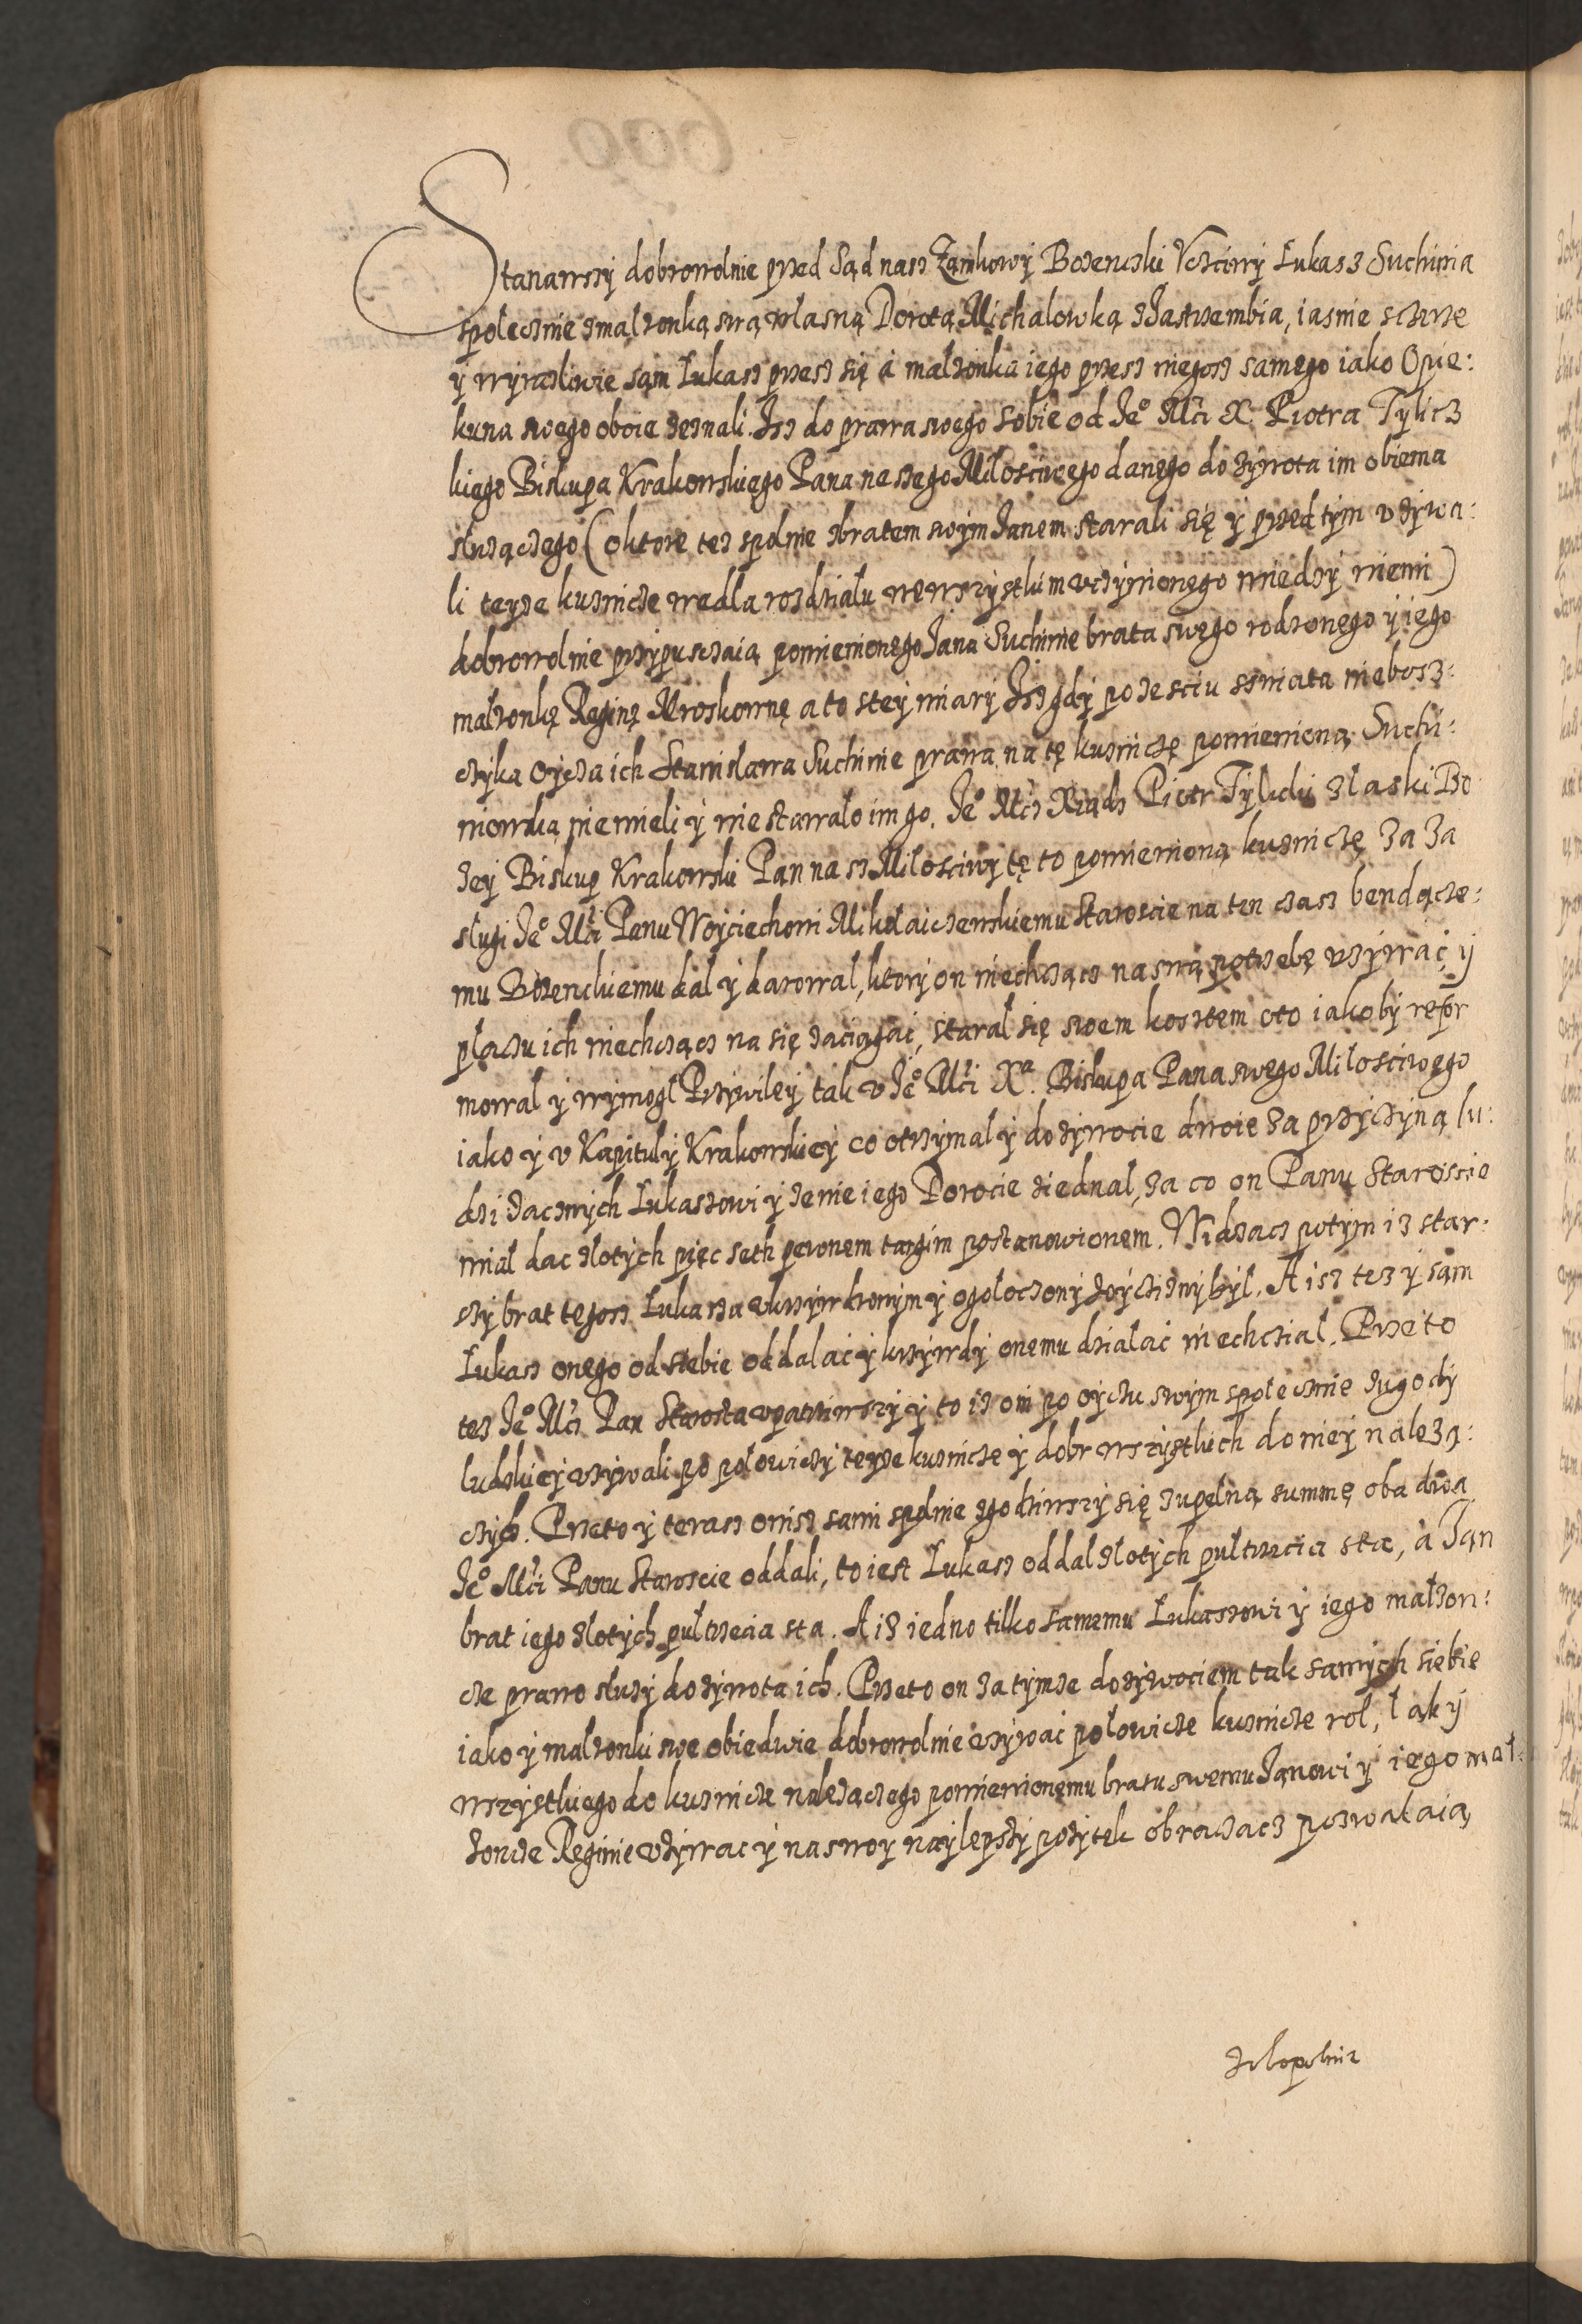 Stanawszy dobrowolnie przed Sąd nasz Zamkowy Bozencki Vczciwy Lukasz Suchinia
spolecznie zmalzonką swą wlasną Dorotą Michalowką zJastrzembia, iasnie sczyrze
y wyrazliwie sąm Lukasz przesz się á malzonka iego przesz niegosz samego iako Opie:
kuna swego oboie zeznali. Isz do prawa swego sobie od Je° Mći X. Piotra Tylicz
kiego Biskupa Krakowskięgo Pana naszego Milosciwego danęgo do zywota im obiema
sluzączego (oktore tez spolnie zbratem swoim Janem starali się y przed tym vzywa:
li teyze kuznicze wedla rozdzialu wewszystkim vczynionęgo miedzy niemi)
dobrowolnie przypusczaią pomienionego Jana Suchinie brata swęgo rodzonęgo y iego
malzonkę Reginę Mroskownę a to stey miary Isz gdy po zesciu sswiata niebosz:
czyka oycza ich Stanislawa Suchinie prawa na tę kuznicżę pomienioną Suchi:
niowską nie mieli y nie stawalo im go. Je° Mcz Xiądz Piotr Tylicki z laski Bo
zey Biskup Krakowski Pan nasz Milosciwy tę to pomienioną kuznicżę za za
slugi Je° Mći Panu Woyciechowi Mikolaiczewskiemu Staroscie na ten czasz bendącze:
mu Bozenckiemu dal y darowal, ktory on niechcząncz na swą potrzebę vzywać, y
placzu ich niechcząncz na się zaciągać, staral się swoem kosztem oto iakoby refor
mowal y wymogl Przywiley tak v Je° Mći Xa. Biskupa Pana swego Milosciwego
iako y v Kapituly Krakowskiey co otrzymal y dozywocie dwoie za przyczyną lu:
dzi zacznych Lukaszowi y zenie iego Dorocie ziednal, za co on Panu Staroscie
mial dac zlotych pięc seth pewnem targim postanowionem. Widząncz potym isz star:
szy brat tegosz Lukasza vkrzywdzonym y ogoloczony zoyczizny byl. A isz tez y sąm
Lukasz onego od siebie oddalać y krzywdy onemu dzialać niechczial. Przeto
tez Je° Mćz Pan Starosta vpatriwszy y to iz oni po oyczu swym spolecznie zugody
ludzkiey vzywali po polowiczy teyze kuznicze y dobr wszystkich do niey nalezą:
czych. Przeto y terasz onisz sami spolnie zgodziwszy się zupelną summę oba dwa
Je° Mći Panu Staroscie oddali, to iest Lukasz oddal zlotych pultrzecia sta, a Jąn
brat iego zlotych pultrzecia sta. A iz iedno tilko samemu Lukaszowi y iego malzon:
cze prawo sluzy do zywota ich. Przeto on za tymze dozywociem tak samych siebie
iako y malzonki swe obiedwie dobrowolnie vzywać polowicze kuznicze rol, lak y
wszystkiego do kuznicze nalezączego pomienionęmu bratu swemu Janowi y iego mal:
zoncze Reginie vzywac y na swoy naylepszy pozytek obraczacz pozwalaią,